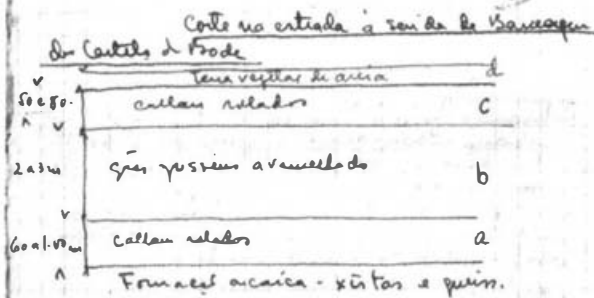 Corte na estrada à saída da Barragem
do Castelo d Bode
Terra vegetal de areia d
50 e 80. calhaus rolados c
2 a 3 m grés grosseiro avermelhado b
60 a 1.00 m calhaus rolados a
Formação arcaica - xistos e gneiss.